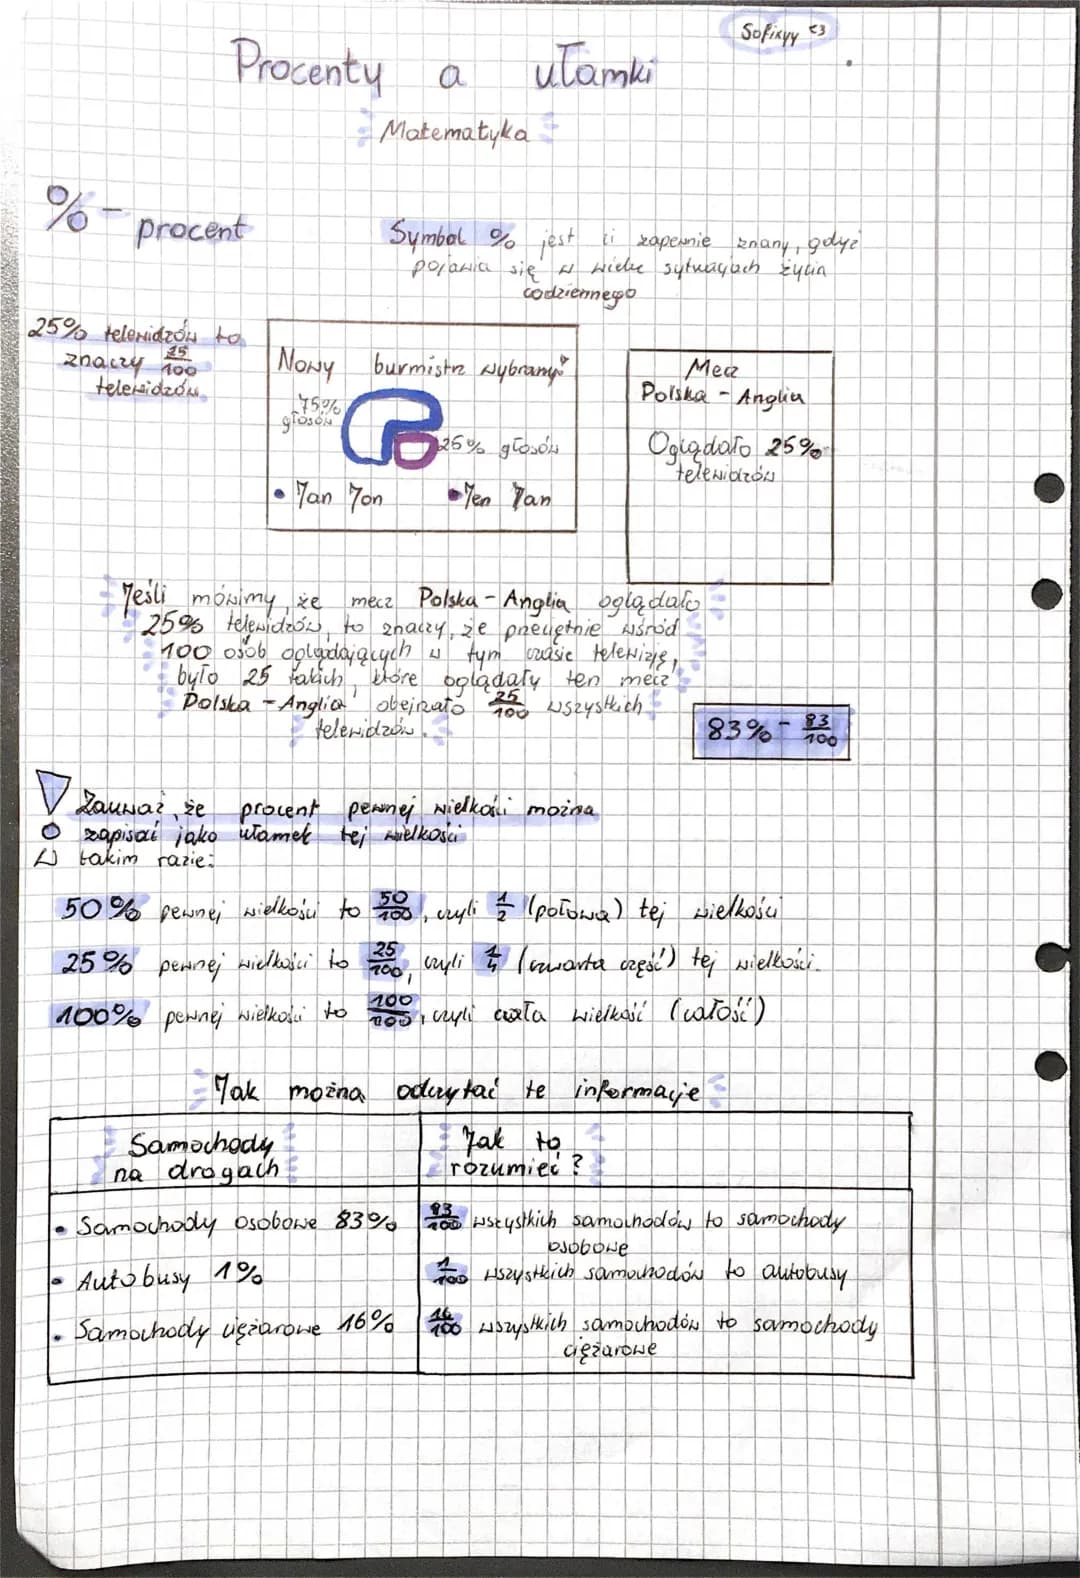 Sofixyy <3
Procenty a ułamki
Matematyka
% - procent
Symbol % jest ci zapewnie znany, gdyż
pojawia się w wielu sytuacjach życia
codziennego
25% telewidzów to
znaczy 25/100
telewidzów
Nowy burmistrz wybrany!
75%
głosów
25% głosów
• Jan Jon
• Jen Jan
Mecz
Polska - Anglia
Oglądało 25%
telewidzów
Jeśli mówimy, że mecz Polska - Anglia oglądało
25% telewidzów, to znaczy, że przeciętnie wśród
100 osób oglądających w tym czasie telewizję,
było 25 takich, które oglądały ten mecz
Polska - Anglia obejrzało 25/100 wszystkich
telewidzów.
83% - 83/100
Zauważ, że procent pewnej wielkości można
zapisać jako ułamek tej wielkości
W takim razie:
50% pewnej wielkości to 50/100, czyli 1/2 (połowa) tej wielkości
25% pewnej wielkości to 25/100, czyli 1/4 (czwarta część) tej wielkości.
100% pewnej wielkości to 100/100, czyli cała wielkość (całość)
Jak można odczytać te informacje
Samochody
na drogach
Jak to
rozumieć?
• Samochody osobowe 83%
83/100 wszystkich samochodów to samochody
osobowe
• Autobusy 1%
1/100 wszystkich samochodów to autobusy
• Samochody ciężarowe 16%
16/100 wszystkich samochodów to samochody
ciężarowe